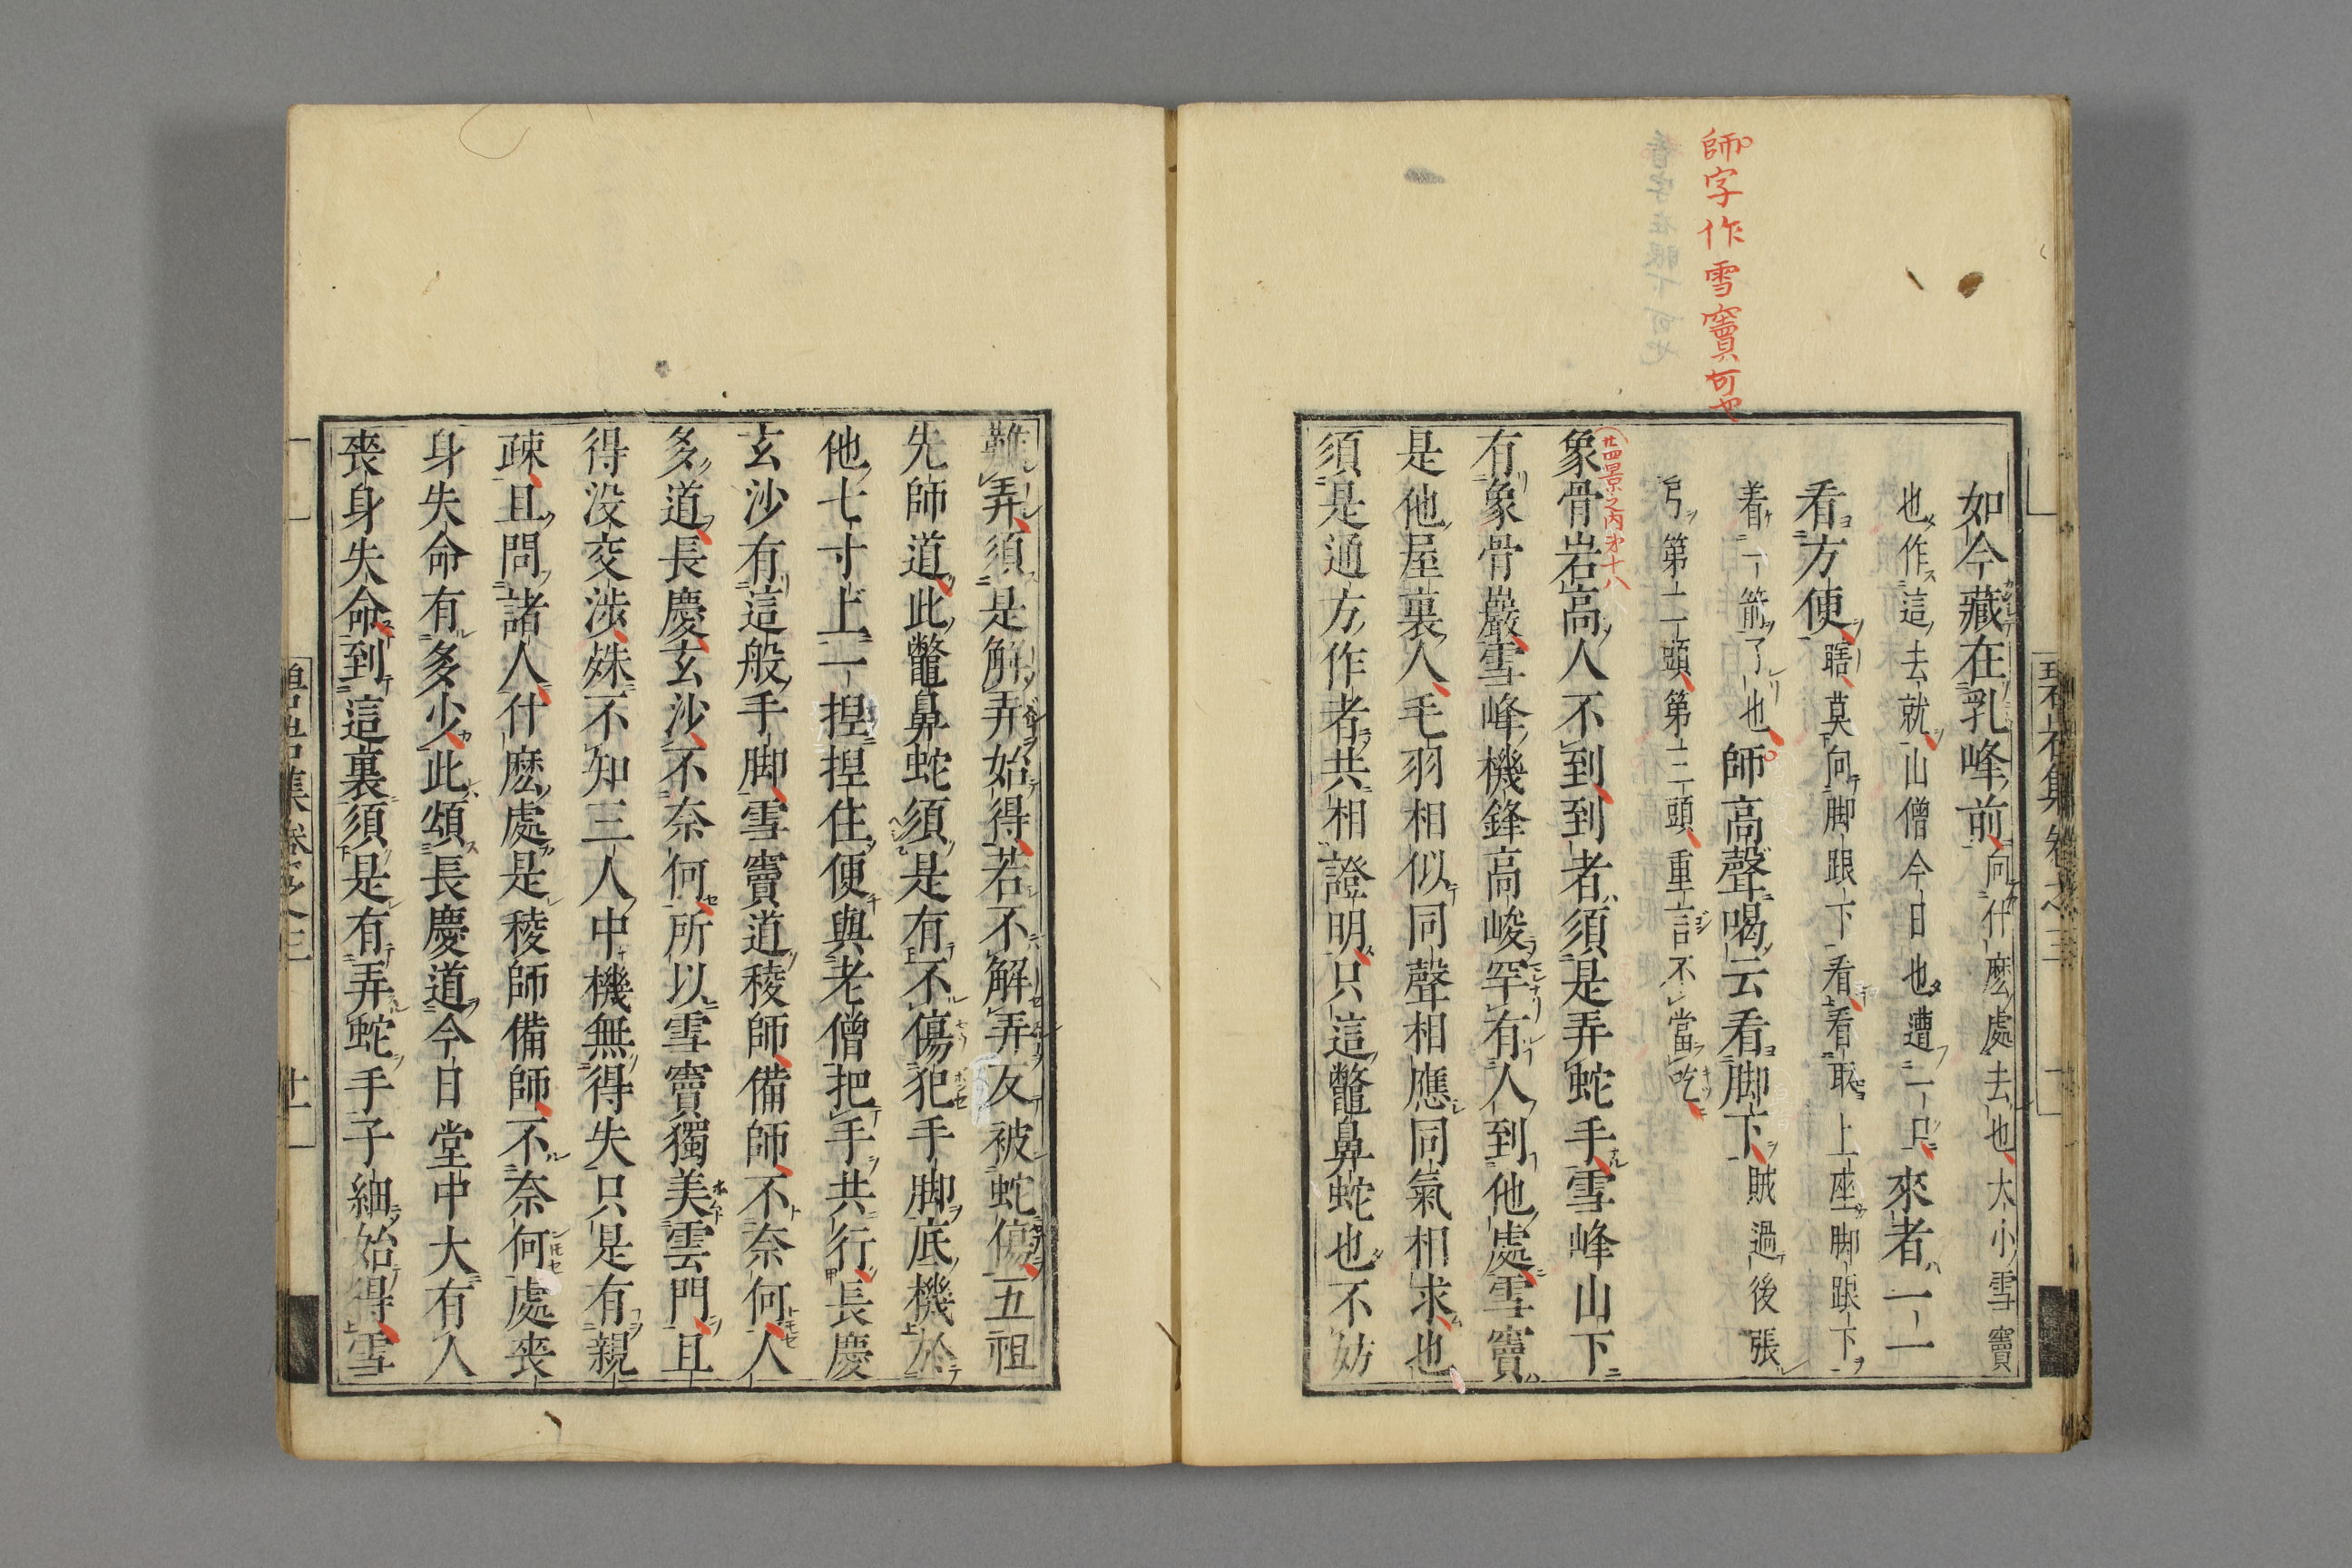 師字作雪竇可也
如今藏在乳峰前向什麼處去也大小雪竇
也作這去就山僧今日也遭一口來者一一
看方便瞎莫向脚跟下看看取上座脚跟下
着一箭了也師高聲喝云看脚下賊過後張
弓第二頭第三頭重言不當吃
廿四景之内第十八
象骨岩高人不到到者須是弄蛇手雪峰山下
有象骨巖雪峰機鋒高峻罕有人到他處雪竇
是他屋裏人毛羽相似同聲相應同氣相求也
須是通方作者共相證明只這鼈鼻蛇也不妨
難弄須是解弄始得若不解弄反被蛇傷五祖
先師道此鼈鼻蛇須是有不傷犯手脚底機於
他七寸上一捏捏住便與老僧把手共行長慶
玄沙有這般手脚雪竇道稜師備師不奈何人
多道長慶玄沙不奈何所以雪竇獨美雲門且
得没交涉殊不知三人中機無得失只是有親
疎且問諸人什麼處是稜師備師不奈何處喪
身失命有多少此頌長慶道今日堂中大有人
喪身失命到這裏須是有弄蛇手子細始得雪
碧岩集卷之三